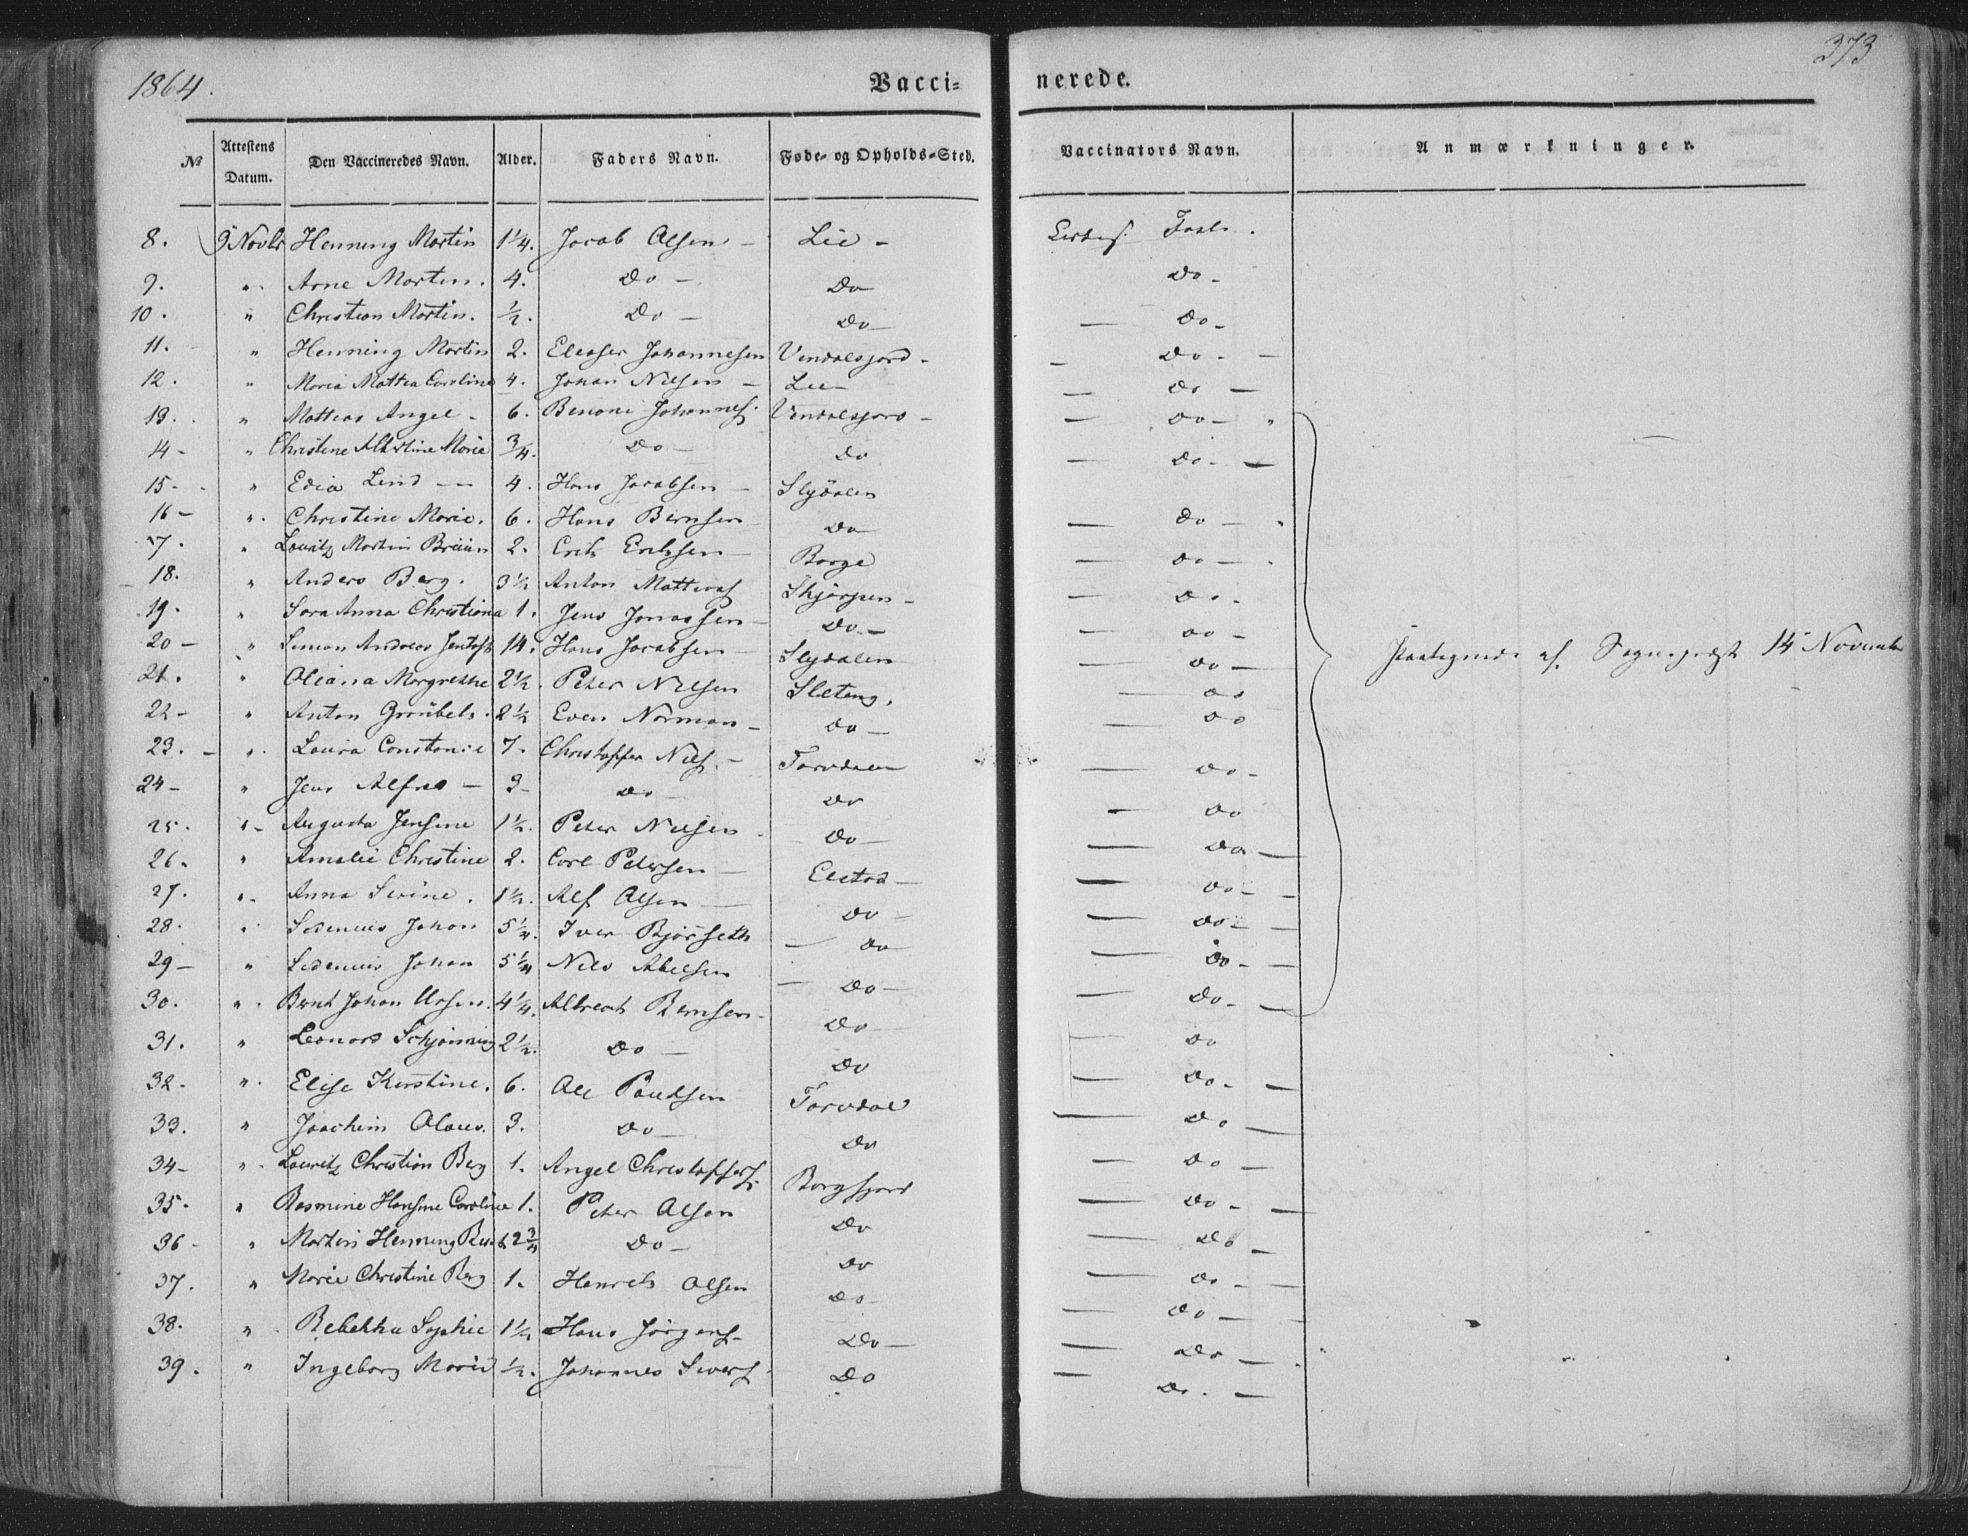 1864.
373
Vaccinerede.
No Attestens Datum. Den Vaccineredes Navn. Alder. Faders Navn. Føde- og Opholds-Sted. Vaccinators Navn. Anmærkninger.
8. 9 Novbr Henning Martin 1 1/4. Jacob Olsen - Lie -
9. " Arne Morten. 4. Do - Do Do -
10. " Christian Martin. 1/2. Do - Do - Do -
11. " Henning Martin 2. Eleaser Johannesen Vendalsjord - Do -
12. " Maria Mattea Caroline 4. Johan Nilsen - Lie - Do -
13. " Mattias Angel - 6. Benoni Johannes. Vendalsjord - Do -
14 - " Christine Albertine Marie 3/4. Do - Do Do -
15 - " Edia Lind - 4. Hans Jacobsen - Slydalen
16 - " Christine Marie. 6. Hans Bernsen Do - Do -
17. " Lauritz Martin Bruun 2. Erik Eriksen - Borge Do -
18. " Anders Berg. 3 1/2 Anton Mattias Skjørpen - Do -
19. " Sara Anna Christiana 1. Jens Jonassen - Do - Do -
20 - " Simon Andreas 14. Hans Jacobsen - Slydalen Do -
21. " Oliana Margrethe 2 1/2. Peter Nilsen Sleteng. Do
22 - " Anton 2 1/2 Even Norman - Do - Do
23. - " Laura Constance 7. Christopher Nils. - Torvdalen Do -
24 - " Jens Alfred - 3 - Do - Do Do
25. " - Augusta Jensine 1 1/2. Peter Nilsen - Do - Do -
26. " Amalie Christine 2. Carl Petersen - Elstad - Do -
27. " Anna Sivine. 1 1/2. Alf Olsen - Do - Do -
28. " Sedenius Johan 5 1/4. Iver Bjørseth - Do Do -
29 - " Sedenius Johan 5 1/4 Nils Abelsen - Do - Do -
30. " Bernt Johan 4 1/4. Albrecht Bernsen - Do
31. " Leonard Schjønning 2 1/2. Do - Do Do
32. " Elise Kirstine. 6. Ole Paulsen Torvdal Do -
33. " Joachim Olaus. 3. Do - Do Do -
34 - " Lauritz Christian Berg 1. Angel Christoffers. Borgfjord Do -
35. " Rasmine Hansine Caroline 1. Peter Olsen Do Do -
36 - " Martin Henning 2 3/4 Do - Do Do -
37. " Marie Christine Berg 1. Henrik Olsen Do - Do -
38. " Rebekka Sophie 1 1/2 Hans Jørgens. Do - Do -
39. " Ingeborg Marie 1/2. Johannes Sivers. Do Do -
Paategnede af Sognepræst 14 November